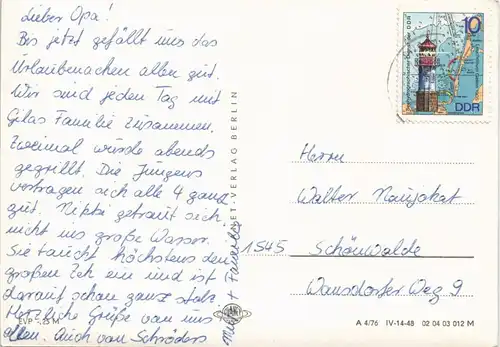 Lieber Opa!
Bis jetzt gefällt uns das
Urlaubmachen allen gut.
Wir sind jeden Tag mit
Gilas Familie zusammen.
Zweimal wurde abends
gegrillt. Die Jungens
vertragen sich alle 4 ganz
gut. Nikki getraut sich
nicht ins große Wasser.
Sie taucht höchstens den
großen Zeh ein und ist
darauf schon ganz stolz.
Herzliche Grüße von uns
allen. Auch von Schröders
+ Familie
EVP -,25 M
-VERLAG BERLIN
10
DDR
Herrn
Walter Naujokat
1545 Schönwalde
Wansdorfer Weg 9
A 4/76 IV-14-48 02 04 03 012 M